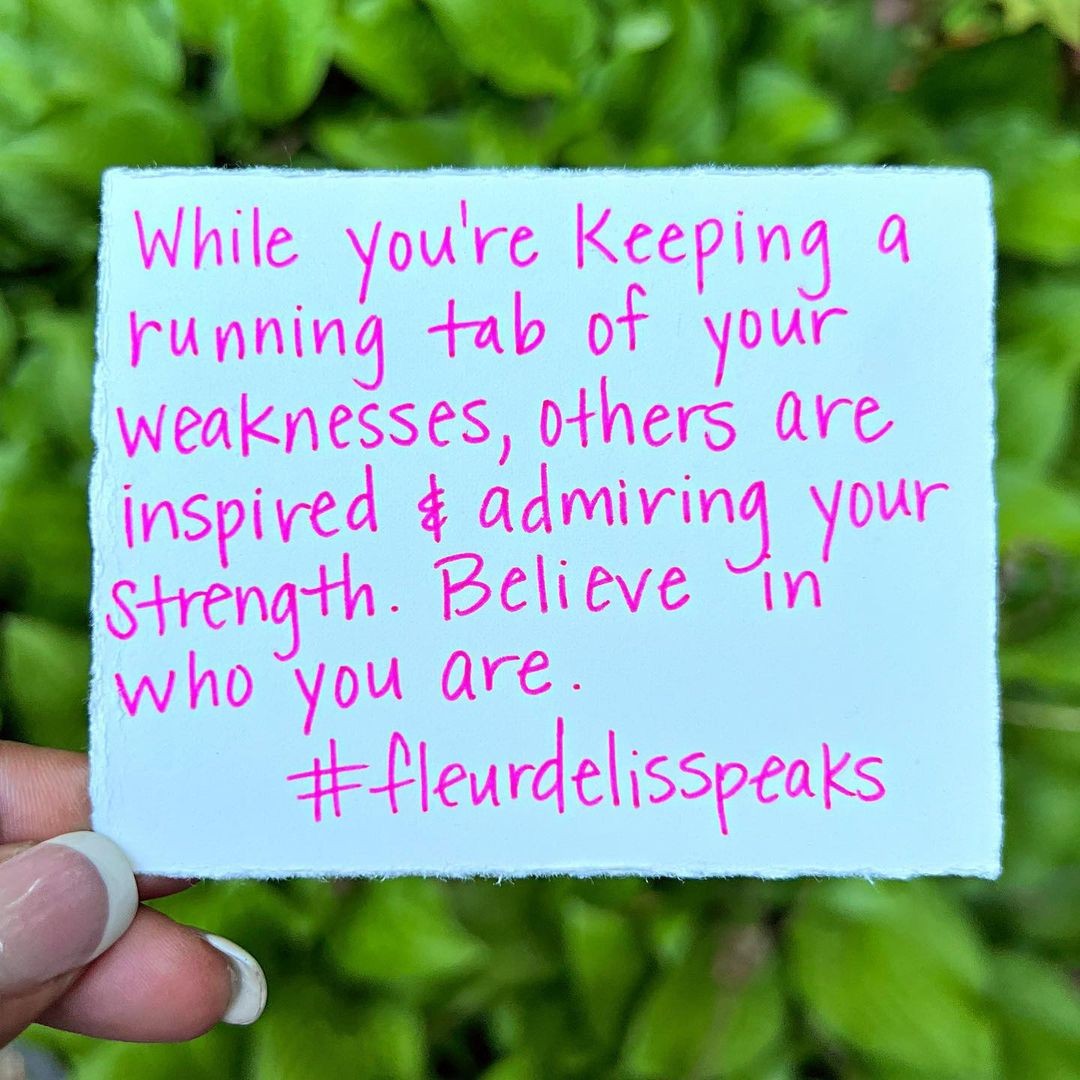 While you're keeping a
running tab of your
weaknesses, others are
inspired & admiring your
strength. Believe in
who you are.
#fleurdelisspeaks